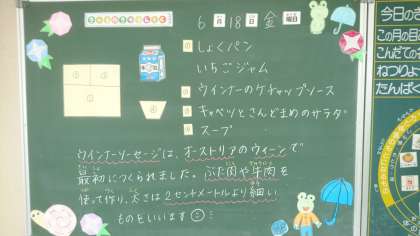 6月18日金曜日
① しょくパン
いちごジャム
② ウインナーのケチャップソース
③ キャベツとさんどまめのサラダ
④ スープ
ウインナーソーセージは、オーストリアのウィーンで
最初につくられました。ぶた肉や牛肉を
使って作り、太さは2センチメートルより細い
ものをいいます
今日の
この月の目
こんだての
ねつりょ
たんぱく